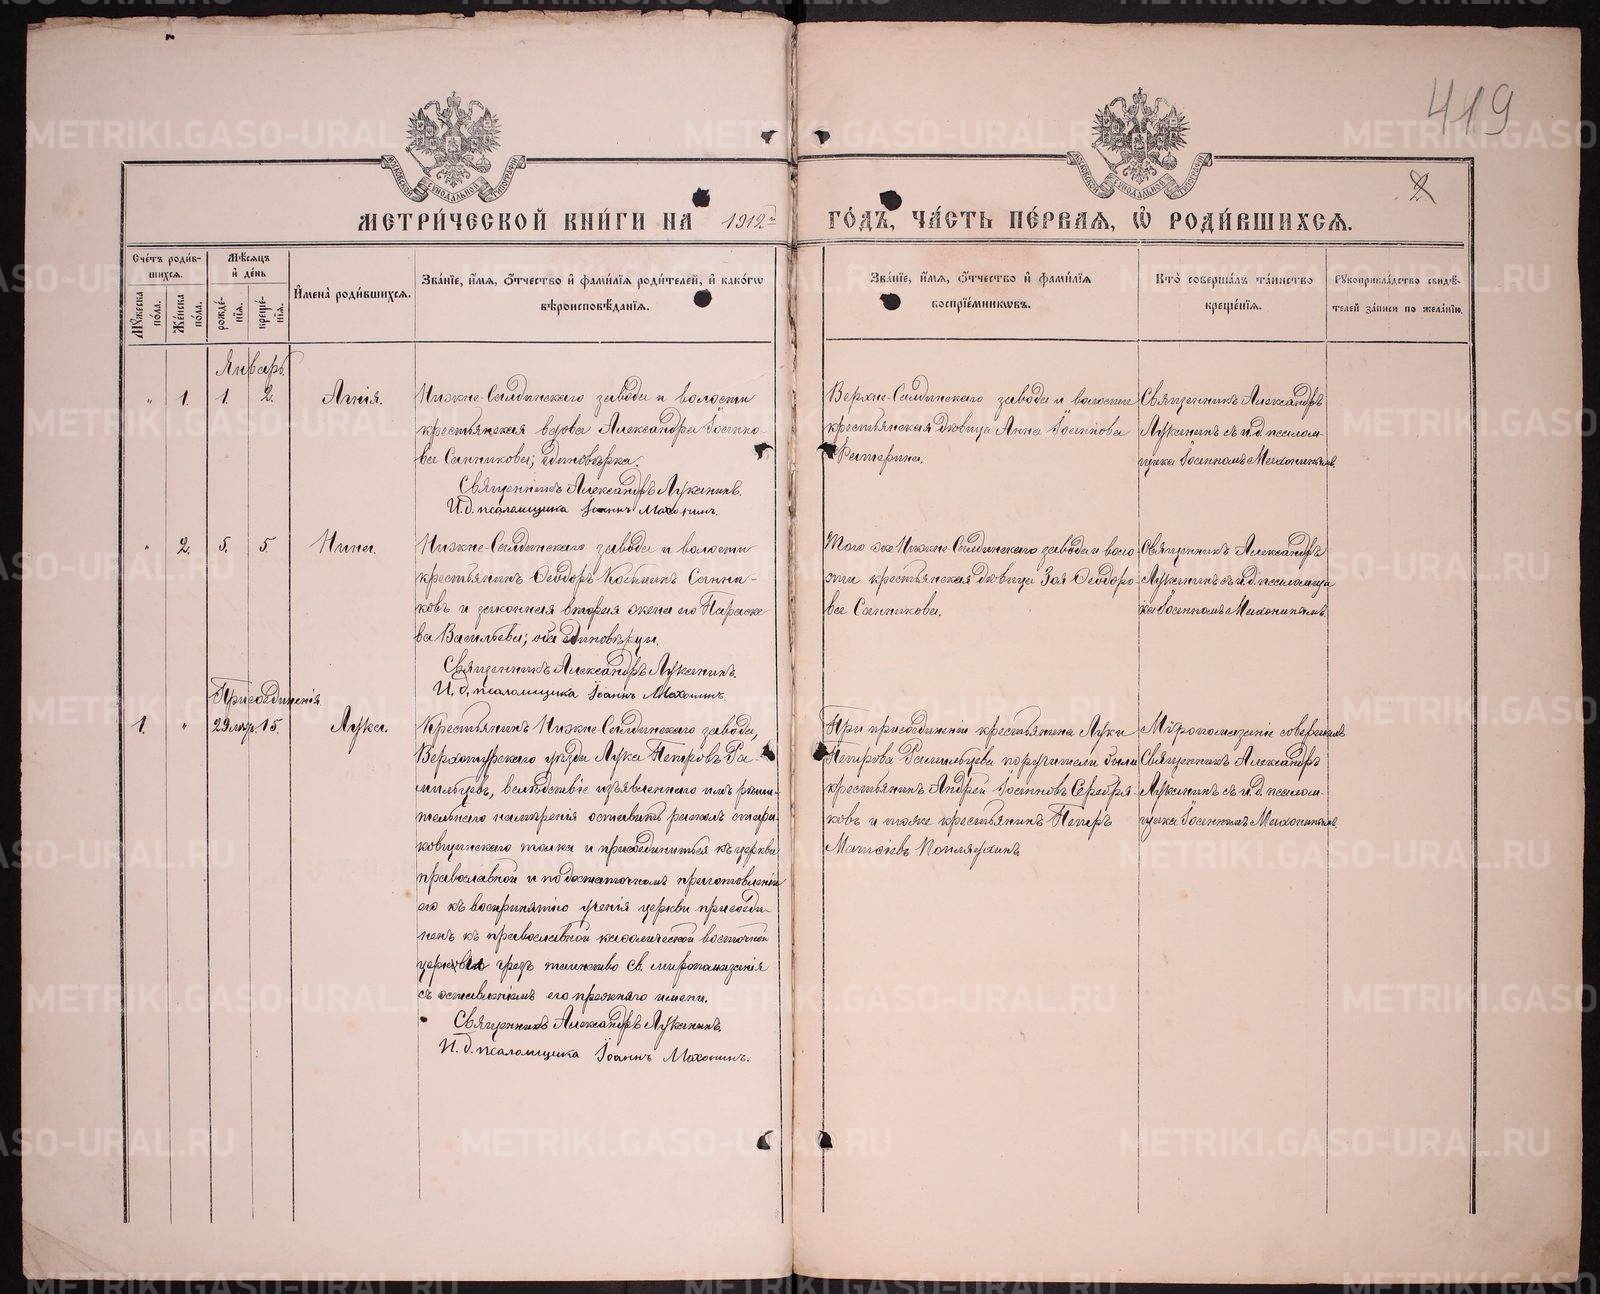 419
2
МОСКОВСКОЙ СѴНОДАЛЬНОЙ ТИПОГРАФІИ
МЕТРИ́ЧЕСКОЙ КНИ́ГИ НА 1912 й ГО́ДЪ, ЧА́СТЬ ПЕ́РВАѦ, Ѡ РОДИ́ВШИХСѦ.
Сче́тъ роди́в-
шихсѧ.
Мѣ́сѧцъ
и де́нь
Мꙋ́жеска
по́ла.
Же́нска
по́ла.
рожде́-
нїѧ.
креще́-
нїѧ.
И҆мена̀ роди́вшихсѧ.
Зва́нїе, и҆́мѧ, ѻ҆́тчество и҆ фами́лїѧ роди́телей, и҆ како́гѡ
вѣроисповѣ́данїѧ.
Зва́нїе, и҆́мѧ, ѻ҆́тчество и҆ фами́лїѧ
воспрїе́мникѡвъ.
Кто̀ соверша́лъ та́инство
креще́нїѧ.
Рꙋкоприкла́дство свидѣ́-
телей за́писи по жела́нїю.
Январь.
" 1. 1. 2. Агнія.
Нижне-Салдинскаго завода и волости
крестьянская вдова Александра Іоанно-
ва Санникова; единовѣрка.
Священникъ Александръ Луканинъ.
И. д. псаломщика Іоаннъ Махонинъ.
Верхне-Салдинскаго завода и волости
крестьянская дѣвица Анна Іоаннова
Священникъ Александръ
Луканинъ съ и. д. псалом-
щика Іоанномъ Махонинымъ.
" 2. 5. 5. Нина.
Нижне-Салдинскаго завода и волости
крестьянинъ Ѳеодоръ Косминъ Санни-
ковъ и законная вторая жена его Параске-
ва Васильева; оба единовѣрцы.
Священникъ Александръ Луканинъ.
И. д. псаломщика Іоаннъ Махонинъ.
Того же Нижне-Салдинскаго завода и воло-
сти крестьянская дѣвица Зоя Ѳеодоро-
ва Санникова.
Священникъ Александръ
Луканинъ съ и. д. псаломщи-
ка Іоанномъ Махонинымъ.
Присоединенія
1. " 29 15. Лука.
Крестьянинъ Нижне-Салдинскаго завода,
Верхотурскаго уѣзда Лука Петровъ Га-
мильцевъ, вслѣдствіе изъявленнаго имъ рѣши-
тельнаго намѣренія оставить расколъ стари-
ковщинскаго толка и присоединиться къ церкви
православной и по достаточномъ приготовленіи
его къ воспринятію ученія церкви присоеди-
ненъ къ православной каѳолической восточной
церкви чрезъ таинство св. мѵропомазанія
съ оставленіемъ его прежняго имени.
Священникъ Александръ Луканинъ.
И. д. псаломщика Іоаннъ Махонинъ.
При присоединеніи крестьянина Луки
Петрова Гамильцева поручители были
крестьянинъ Андрей Іоанновъ Серебря-
ковъ и также крестьянинъ Петръ
Матѳіевъ
Мѵропомазаніе совершилъ
Священникъ Александръ
Луканинъ съ и. д. псалом-
щика Іоанномъ Махонинымъ.
METRIKI.GASO-URAL.RU